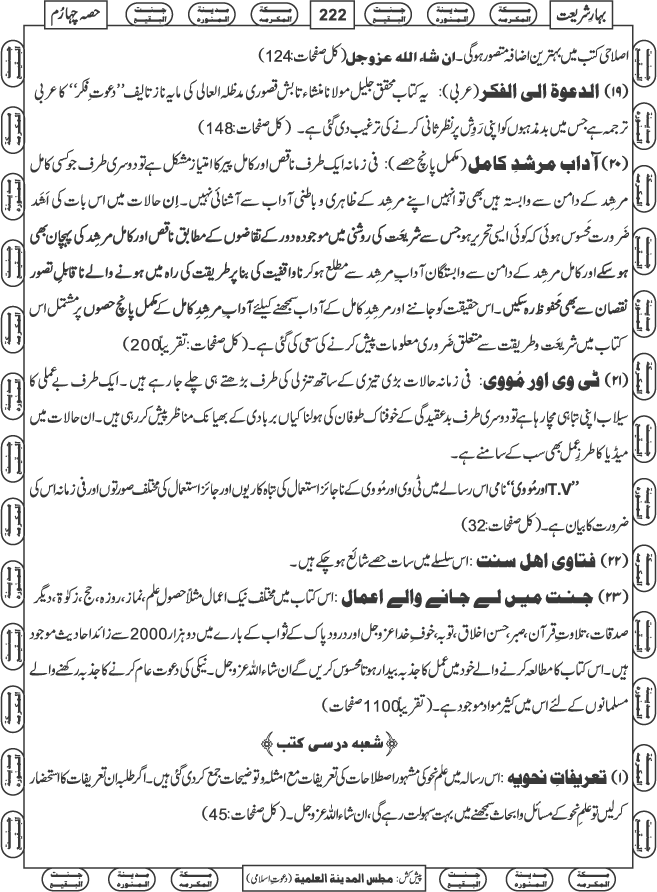 بہارِ شریعت 222 حصہ چہارم
اصلاحی کتب میں بہترین اضافہ متصور ہوگی۔ ان شاء اللہ عزوجل (کل صفحات: 124)
(۱۹) الدعوۃ الی الفکر (عربی): یہ کتاب محقق جلیل مولانا منشاء تابش قصوری مدظلہ العالی کی مایہ ناز تالیف ’’دعوتِ فکر‘‘ کا عربی
ترجمہ ہے جس میں بدمذہبوں کو اپنی رَوِش پر نظر ثانی کرنے کی ترغیب دی گئی ہے۔ (کل صفحات: 148)
(۲۰) آداب مرشدِ کامل (مکمل پانچ حصے): فی زمانہ ایک طرف ناقص اور کامل پیر کا امتیاز مشکل ہے تو دوسری طرف جو کسی کامل
مرشد کے دامن سے وابستہ ہیں بھی تو انہیں اپنے مرشد کے ظاہری و باطنی آداب سے آشنائی نہیں۔ اِن حالات میں اس بات کی اَشد
ضَرورت محسوس ہوئی کہ کوئی ایسی تحریر ہو جس سے شریعَت کی روشنی میں موجودہ دور کے تقاضوں کے مطابق ناقص اور کامل مرشد کی پہچان بھی
ہوسکے اور کامل مرشد کے دامن سے وابستگان آدابِ مرشد سے مطلع ہو کر ناواقفیت کی بنا پر طریقت کی راہ میں ہونے والے ناقابلِ تصور
نقصان سے بھی محفوظ رہ سکیں۔ اس حقیقت کو جاننے اور مرشِد کامل کے آداب سمجھنے کیلئے آداب مرشدِ کامل کے مکمل پانچ حصوں پر مشتمل اس
کتاب میں شریعَت و طریقت سے متعلق ضَروری معلومات پیش کرنے کی سعی کی گئی ہے۔ (کل صفحات: تقریباً 200)
(۲۱) ٹی وی اور مُووی: فی زمانہ حالات بڑی تیزی کے ساتھ تنزلی کی طرف بڑھتے ہی چلے جا رہے ہیں۔ ایک طرف بے عملی کا
سیلاب اپنی تباہی مچا رہا ہے تو دوسری طرف بدعقیدگی کے خوفناک طوفان کی ہولناکیاں بربادی کے بھیانک مناظر پیش کر رہی ہیں۔ ان حالات میں
میڈیا کا طرزِ عمل بھی سب کے سامنے ہے۔
’’T.V اور مُووی‘‘ نامی اس رسالے میں ٹی وی اور مُووی کے ناجائز استعمال کی تباہ کاریوں اور جائز استعمال کی مختلف صورتوں اور فی زمانہ اس کی
ضرورت کا بیان ہے۔ (کل صفحات: 32)
(۲۲) فتاوی اھل سنت: اس سلسلے میں سات حصے شائع ہوچکے ہیں۔
(۲۳) جنت میں لے جانے والے اعمال: اس کتاب میں مختلف نیک اعمال مثلاً حصولِ علم، نماز، روزہ، حج، زکوٰۃ، دیگر
صدقات، تلاوتِ قرآن، صبر، حسن اخلاق، توبہ، خوفِ خدا عزوجل اور درود پاک کے ثواب کے بارے میں دو ہزار 2000 سے زائد احادیث موجود
ہیں۔ اس کتاب کا مطالعہ کرنے والے خود میں عمل کا جذبہ بیدار ہوتا محسوس کریں گے ان شاء اللہ عزوجل۔ نیکی کی دعوت عام کرنے کا جذبہ رکھنے والے
مسلمانوں کے لئے اس میں کثیر مواد موجود ہے۔ (تقریباً 1100 صفحات)
﴿شعبہ درسی کتب﴾
(۱) تعریفاتِ نحویہ: اس رسالہ میں علم نحو کی مشہور اصطلاحات کی تعریفات مع امثلہ و توضیحات جمع کر دی گئی ہیں۔ اگر طلبہ اِن تعریفات کا استحضار
کر لیں تو علم نحو کے مسائل و ابحاث سمجھنے میں بہت سہولت رہے گی، ان شاء اللہ عزوجل۔ (کل صفحات: 45)
پیش کش: مجلس المدینۃ العلمیۃ (دعوتِ اسلامی)